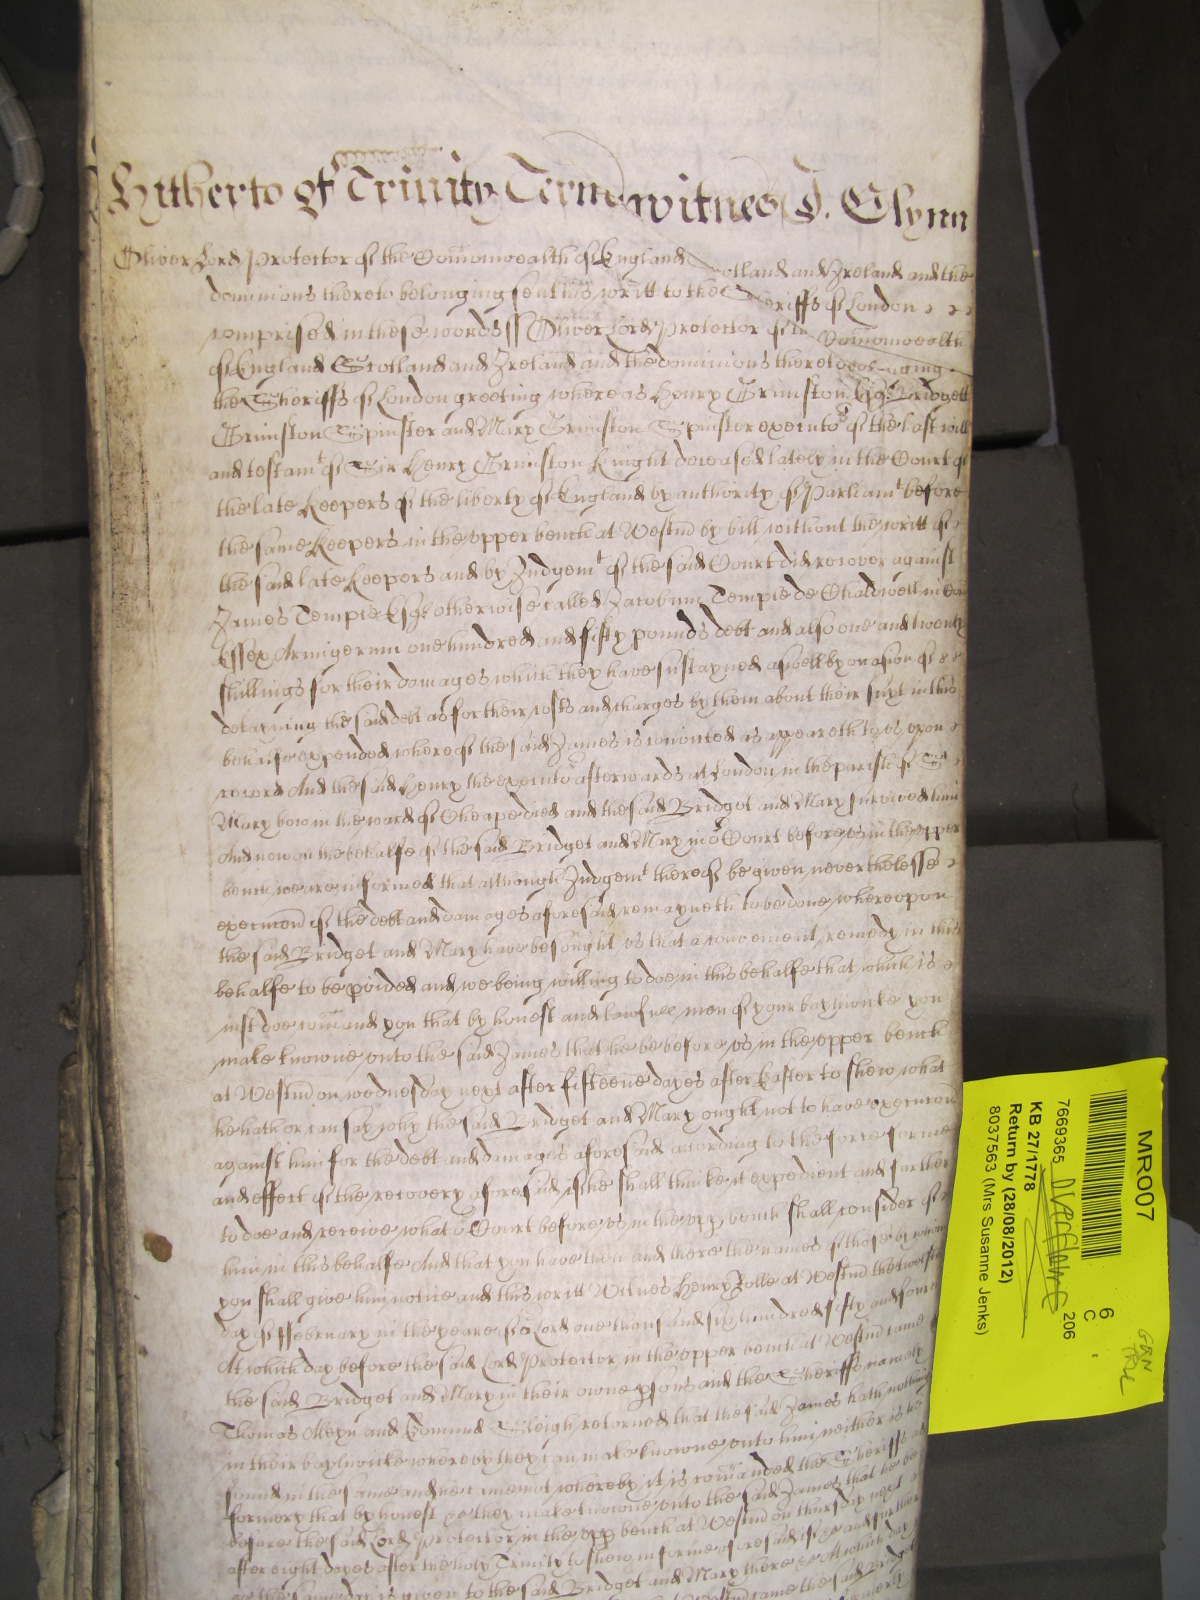 Hitherto of Trinity Terme witnes J. Glynn
Oliver Lord Protector of the Comonwealth of England Scotland and Ireland and the
dominions thereto belonging sent his writt to the Sheriffs of London
comprised in these words ss Oliver Lord Protector of the Comonwealth
of England Scotland and Ireland and the dominions thereto belonging
the Sheriffs of London greeting whereas Henry Grimston Esqr Bridgett
Grimston Spinster and Mary Grimston Spinster executors of the last will
and testamt of Sir Henry Grimston Knight deceased lately in the Court of
the late Keepers of the liberty of England by authority of Parliamt before
the same Keepers in the upper bench at Westmr by bill without the writt of
the said late Keepers and by Judgemt of the said Court did recover against
James Temple Esqr otherwise called Jacobum Temple de Chadwell in Com
Essex Armigerum one hundred and fifty pounds debt and also one and twenty
shillings for their damages which they have sustayned aswell by occasion of
detayning the said debt as for their costs and charges by them about their suyt in this
behalfe expended whereof the said James is convicted as appeareth to us upon
record And the said Henry the executor afterwards at London in the parish of St
Mary bow in the ward of Cheape died and the said Bridget and Mary survived him
And now on the behalfe of the said Bridget and Mary in or Court before us in the upper
bench we are informed that although Judgemt thereof be given nevertheless
execucon of the debt and damages aforesaid remayneth to be done whereupon
the said Bridget and Mary have besought us that a convenient remedy in this
behalfe to be pvided and we being willing to doe in this behalfe that which is
iust doe comand you that by honest and lawfull men of your baylwicke you
make knowne unto the said James that he be before us in the upper bench
at Westmr on wednesday next after fifteene dayes after Easter to shew what
he hath or can say why the said Bridget and Mary ought not to have execucon
against him for the debt and damages aforesaid according to the force forme
and effect of the recovery aforesaid if he shall thinke it expedient and further
to doe and receive what or Court before us in the upp bench shall consider of
him in this behalfe And that you have then and there the names of those by whom
you shall give him notice and this writt Witnes Henry Rolle at Westmr the twelfth
day of ffebruary in the yeare of or Lord one thousand six hundred fifty and foure
At which day before the said Lord Protector in the upper bench at Westmr came
the said Bridget and Mary in their owne psons and the Sheriffs namely
Thomas Aleyn and Edmund Sleigh retorned that the said James hath nothing
in their baylwicke whereby they can make knowne unto him neither is he
found in the same and he came not whereby it is comanded the Sheriffs as
formerly that by honest &c they make knowne unto the said James that he be
before the said Lord Protector in the upp bench at Westmr on thursday next
after eight dayes after the holy Trinity to shew in forme aforesaid if &c and further
&c the same day is given to the said Bridget and Mary there &c At which day
Westmr came the said Bridget
MR007
7669365
206
6
C
KB 27/1778
Return by (28/08/2012)
8037563 (Mrs Susanne Jenks)